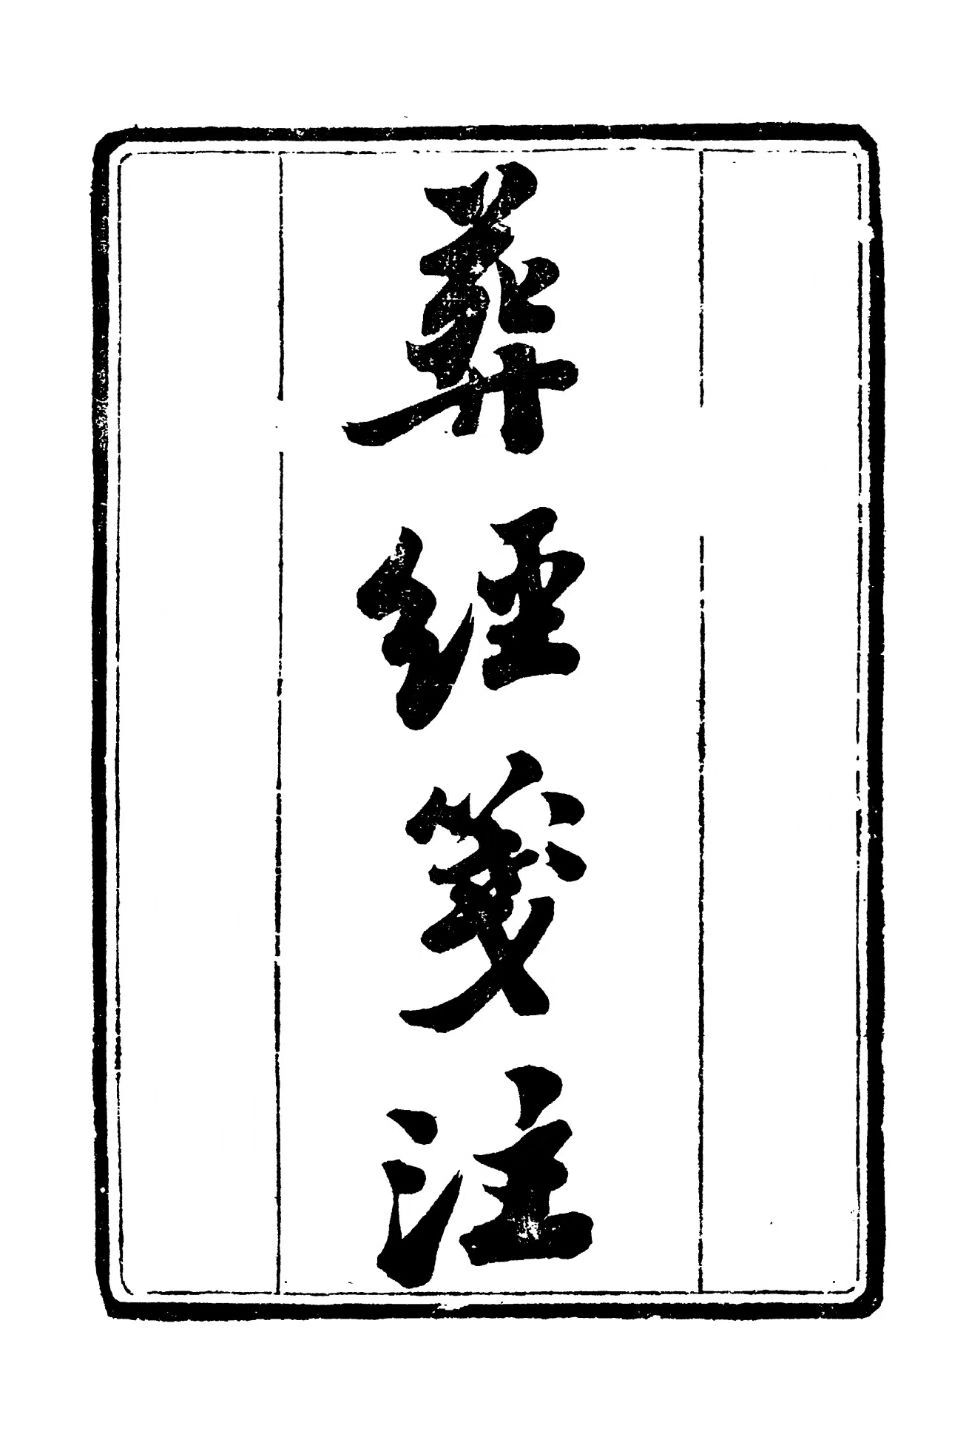 葬經箋注